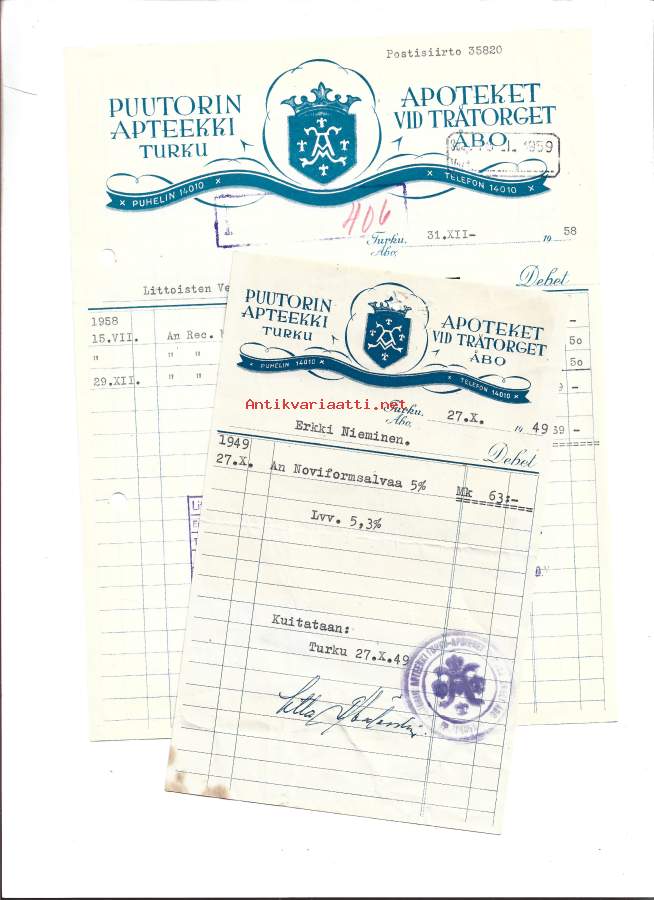 Postisiirto 35820
PUUTORIN
APTEEKKI
TURKU
APOTEKET
VID TRÄTORGET
ÅBO
1959
PUHELIN 14010
TELEFON 14010
406
Turku. Åbo. 31.XII- 19 58
Debet
Littoisten Ve
1958
15.VII. An Rec.
" " "
29.XII. " "
50
50
PUUTORIN
APTEEKKI
TURKU
APOTEKET
VID TRÄTORGET
ÅBO
PUHELIN 14010
TELEFON 14010
Antikvariaatti.net
Turku. Åbo. 27.X. 19 49
Erkki Nieminen.
Debet
1949
27.X. An Noviformsalvaa 5% Mk 63:-
Lvv. 5,3%
Kuitataan:
Turku 27.X.49